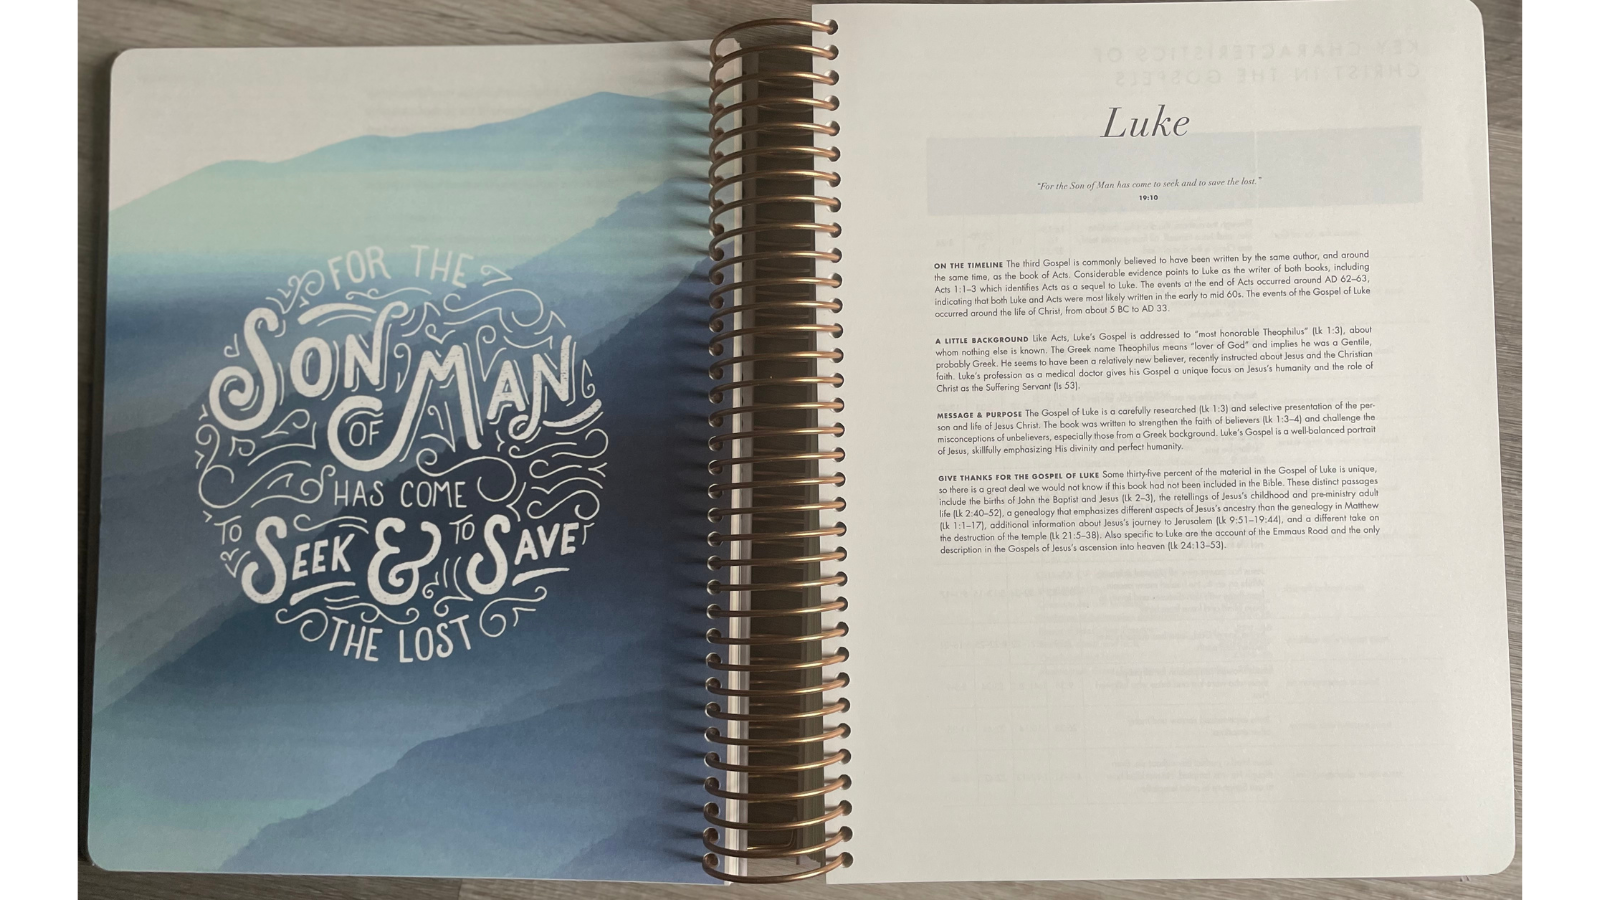 FOR THE
SON OF MAN
HAS COME
TO SEEK & TO SAVE
THE LOST
KEY CHARACTERISTICS OF
CHRIST IN THE GOSPELS
Luke
"For the Son of Man has come to seek and to save the lost."
19:10
ON THE TIMELINE The third Gospel is commonly believed to have been written by the same author, and around
the same time, as the book of Acts. Considerable evidence points to Luke as the writer of both books, including
Acts 1:1–3 which identifies Acts as a sequel to Luke. The events at the end of Acts occurred around AD 62–63,
indicating that both Luke and Acts were most likely written in the early to mid 60s. The events of the Gospel of Luke
occurred around the life of Christ, from about 5 BC to AD 33.
A LITTLE BACKGROUND Like Acts, Luke's Gospel is addressed to "most honorable Theophilus" (Lk 1:3), about
whom nothing else is known. The Greek name Theophilus means "lover of God" and implies he was a Gentile,
probably Greek. He seems to have been a relatively new believer, recently instructed about Jesus and the Christian
faith. Luke's profession as a medical doctor gives his Gospel a unique focus on Jesus's humanity and the role of
Christ as the Suffering Servant (Is 53).
MESSAGE & PURPOSE The Gospel of Luke is a carefully researched (Lk 1:3) and selective presentation of the per-
son and life of Jesus Christ. The book was written to strengthen the faith of believers (Lk 1:3–4) and challenge the
misconceptions of unbelievers, especially those from a Greek background. Luke's Gospel is a well-balanced portrait
of Jesus, skillfully emphasizing His divinity and perfect humanity.
GIVE THANKS FOR THE GOSPEL OF LUKE Some thirty-five percent of the material in the Gospel of Luke is unique,
so there is a great deal we would not know if this book had not been included in the Bible. These distinct passages
include the births of John the Baptist and Jesus (Lk 2–3), the retellings of Jesus's childhood and pre-ministry adult
life (Lk 2:40–52), a genealogy that emphasizes different aspects of Jesus's ancestry than the genealogy in Matthew
(Lk 1:1–17), additional information about Jesus's journey to Jerusalem (Lk 9:51–19:44), and a different take on
the destruction of the temple (Lk 21:5–38). Also specific to Luke are the account of the Emmaus Road and the only
description in the Gospels of Jesus's ascension into heaven (Lk 24:13–53).